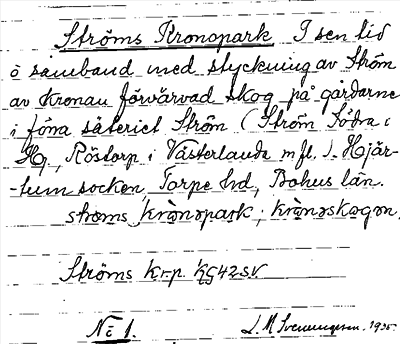 Ströms Kronopark I sen tid
o samband med styckning av Ström
av kronan förvärvad skog på gårdarne
i förra säteriet Ström (Ström Södra o
Hg, Röstorp i Västerlanda m fl.). Hjär-
-tum socken Torpe hd, Bohus län.
ströms krònopark; krònoskogen.
Ströms krp. KG42SV
No 1.
L. M Svenungsson. 1935